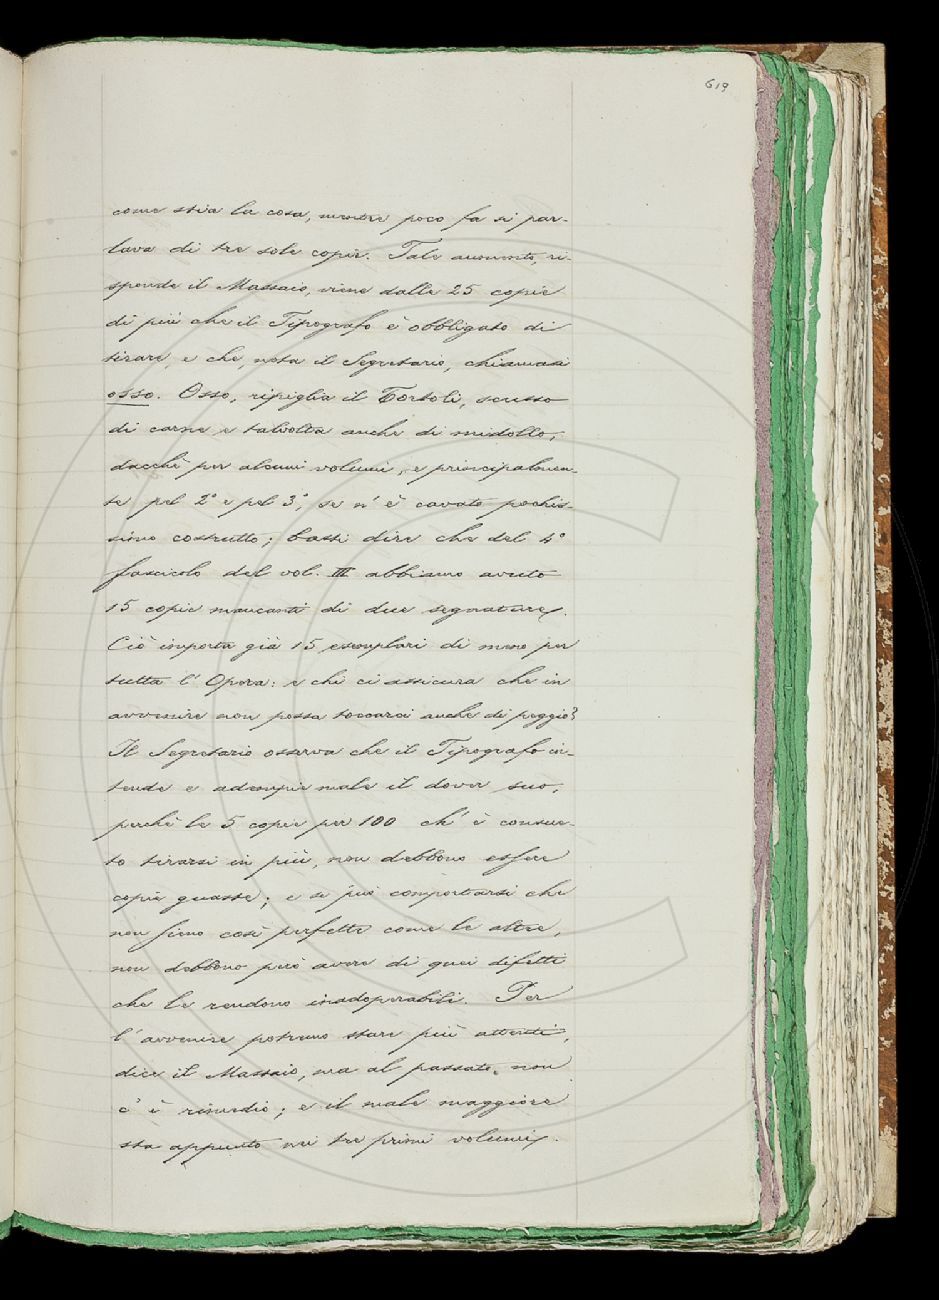 619
come stia la cosa, mentre poco fa si par-
lava di tre sole copie. Tale aumento, ri-
sponde il Massaio, viene dalle 25 copie
di più che il Tipografo è obbligato di
tirare, e che, nota il Segretario, chiamasi
osso. Osso, ripiglia il Tortoli, scusso
di carne e talvolta anche di midollo,
dacchè per alcuni volumi, e principalmen-
te pel 2° e pel 3°, se n'è cavato pochis-
simo costrutto; basti dire che del 4°
fascicolo del vol. III abbiamo avuto
15 copie mancanti di due segnature.
Ciò importa già 15 esemplari di meno per
tutta l'Opera: e chi ci assicura che in
avvenire non possa toccarci anche di peggio?
Il Segretario osserva che il Tipografo in-
tende e adempie male il dover suo,
perchè le 5 copie per 100 ch'è consue-
to tirarsi in più, non debbono essere
copie guaste; e se può comportarsi che
non sieno così perfette come le altre,
non debbono però avere di quei difetti
che le rendono inadoperabili. Per
l'avvenire potremo stare più attenti,
dice il Massaio, ma al passato non
c'è rimedio; e il male maggiore
sta appunto nei tre primi volumi.